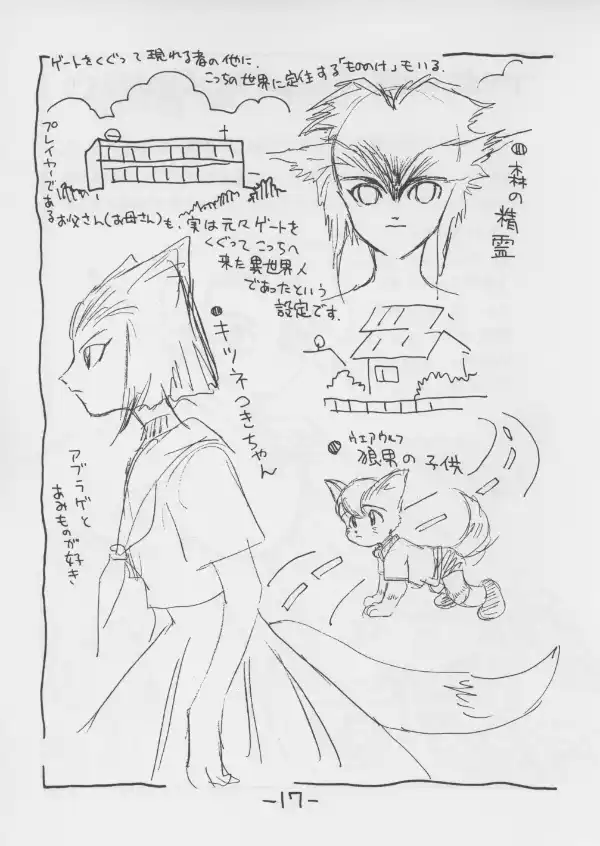 ゲートをくぐって現れる者の他に、
こっちの世界に定住する「もののけ」もいる.
プレイヤーである
お父さん(お母さん)も、実は元々ゲートを
くぐってこっちへ
来た異世界人
であったという
設定です.
●森の精霊
●キツネつきちゃん
アブラゲと
あみものが好き
ウェアウルフ
●狼男の子供
-17-